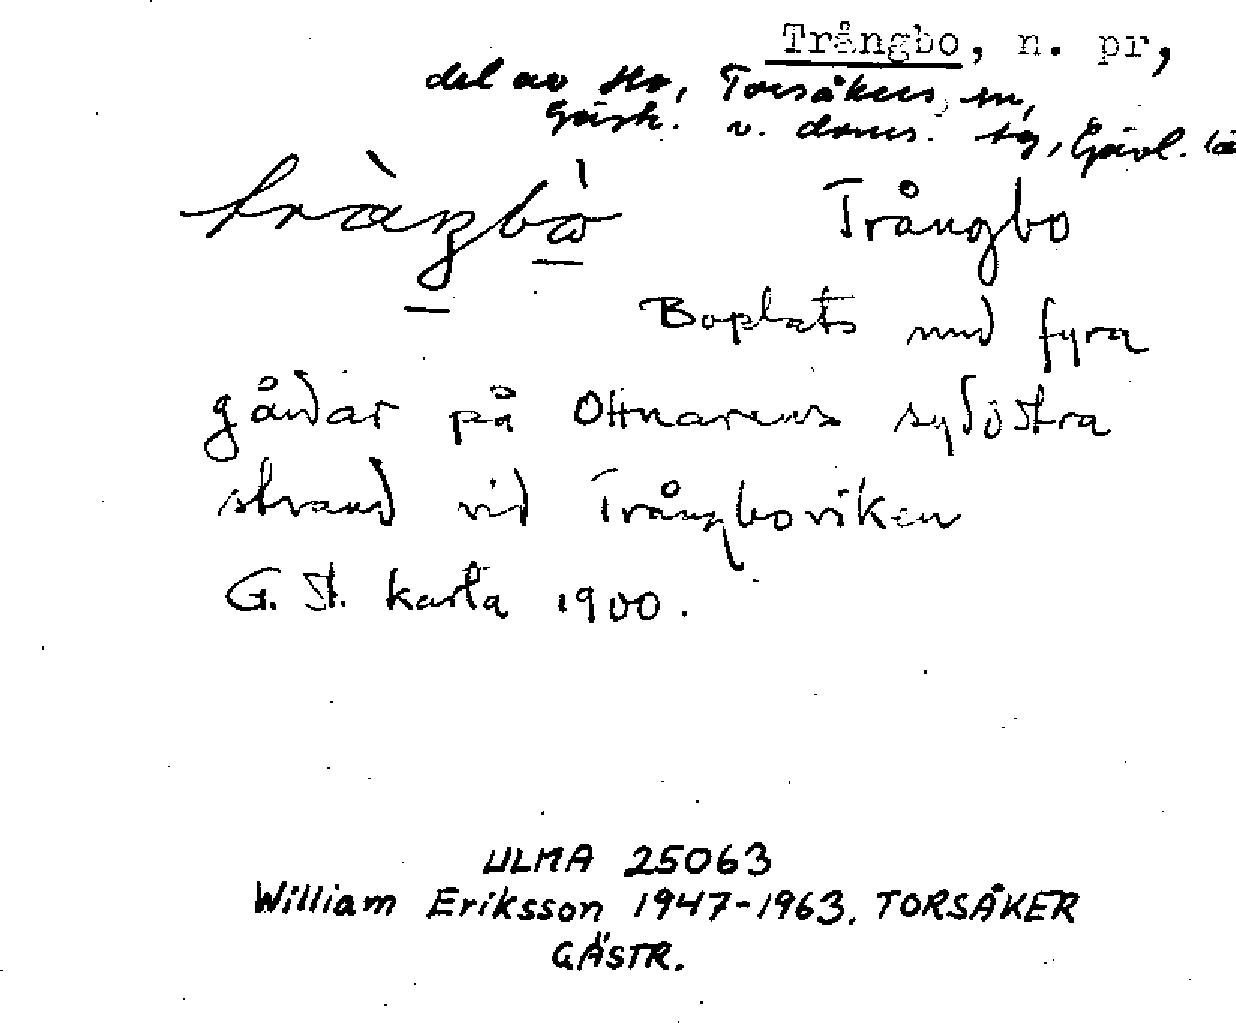 Trångbo, n. pr,
del av Ho, Torsåkers sn,
Gästr. v. doms. tg, Gävl. lä
Trångbo
Boplats med fyra
gårdar på Ottnarens sydöstra
strand vid Trångboviken
G. St. karta 1900.
ULMA 25063
William Eriksson 1947-1963. TORSÅKER
GÄSTR.